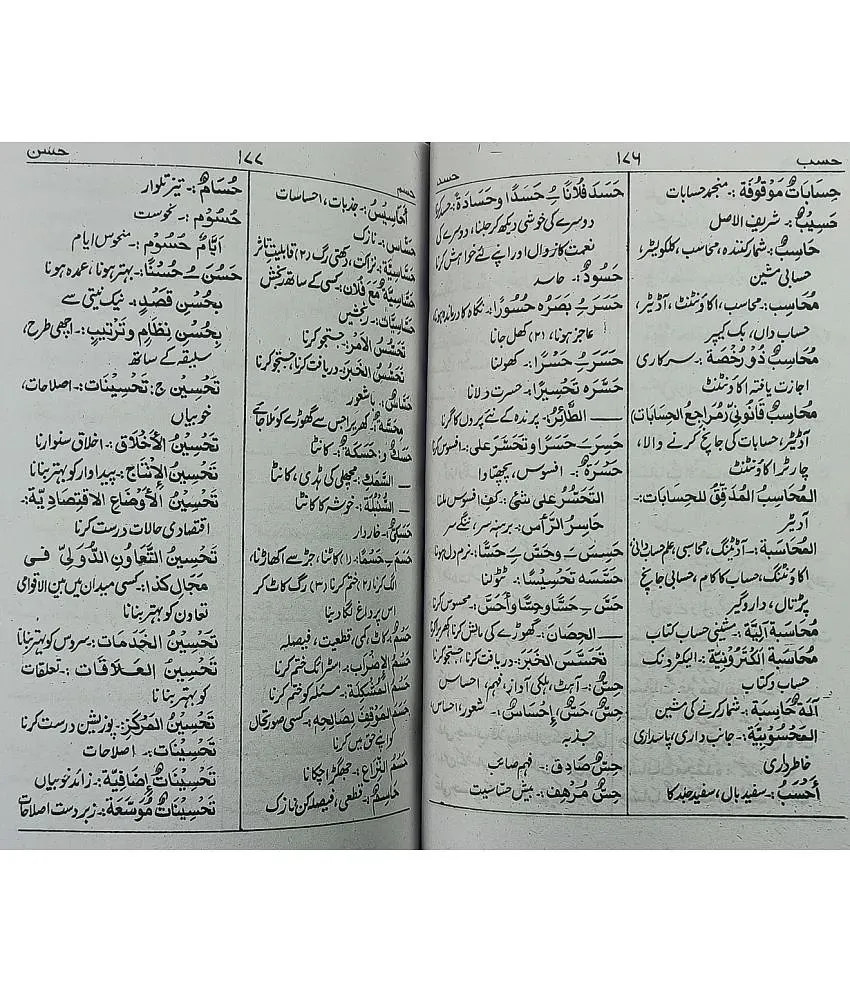 حسب
۱۷۶
حسد
حِسَابَاتٌ مَوْقُوْفَةٌ :۔ منجمد حسابات
حَسِيْبٌ :۔ شریف الاصل
حَاسِبٌ :۔ شمار کنندہ، محاسب، کلکولیٹر،
حسابی مشین
مُحَاسِبٌ :۔ محاسب، اکاؤنٹنٹ، آڈیٹر،
حساب داں، بک کیپر
مُحَاسِبٌ ذُوْ رُخْصَةٍ :۔ سرکاری
اجازت یافتہ اکاؤنٹنٹ
مُحَاسِبٌ قَانُوْنِيٌّ (مُرَاجِعُ الحِسَابَات)
آڈیٹر، حسابات کی جانچ کرنے والا،
چارٹرا کاؤنٹنٹ
المُحَاسِبُ المُدَقِّقُ لِلحِسَابَات :۔
آڈیٹر
المُحَاسَبَة :۔ آڈٹنگ، محاسبی، علم حسابدانی
اکاؤنٹنگ، حساب کا کام، حسابی جانچ
پڑتال، داروگیر
مُحَاسَبَة آلِيَّة :۔ مشینی حساب کتاب
مُحَاسَبَة اِلكْتُرُوْنِيَّة :۔ الیکٹرونک
حساب و کتاب
آلَةٌ حَاسِبَة :۔ شمار کرنے کی مشین
المَحْسُوْبِيَّة :۔ جانب داری، پاسداری
خاطرداری
أَحْسَبُ :۔ سفید بال، سفید جلد کا
حَسَدَ فُلَانًا ـُـ حَسَدًا وحَسَادَةً :۔ حسد کرنا
دوسرے کی خوشی دیکھ کر جلنا، دوسرے کی
نعمت کا زوال اور اپنے لئے خواہش کرنا
حَسُوْدٌ :۔ حاسد
حَسَرَ ـِـ بَصَرُہٗ حُسُوْرًا :۔ نگاہ کا درماندہ ہونا،
عاجز ہونا، (۲) کھل جانا
حَسَرَ ـِـ حَسْرًا :۔ کھولنا
حَسَّرَہ تَحْسِيْرًا :۔ حسرت دلانا
ــــ الطَّائِرُ :۔ پرندہ کے نئے پروں کا گرنا
حَسِرَ ـَـ حَسَرًا وتَحَسَّرَ على :۔ افسوس کرنا
حَسْرَةٌ :۔ افسوس، پچھتاوا
التَّحَسُّرُ عَلٰى شَيْءٍ :۔ کف افسوس ملنا
حَاسِرُ الرَّأْسِ :۔ برہنہ سر، ننگے سر
حَسِسَ ـَـ وحَسَّ ـِـ حَسًّا :۔ نرم دل ہونا
حَسَّسَہ تَحْسِيْسًا :۔ ٹٹولنا
حَسَّ ـِـ حَسًّا وحِسًّا وأَحَسَّ :۔ محسوس کرنا
ــــ الحِصَانَ :۔ گھوڑے کی مالش کرنا
تَحَسَّسَ الخَبَرَ :۔ دریافت کرنا، جستجو کرنا
حِسٌّ :۔ آہٹ، ہلکی آواز، فہم، احساس
حِسٌّ، حَسٌّ، إِحْسَاسٌ :۔ شعور، احساس،
جذبہ
حِسٌّ صَادِقٌ :۔ فہم صائب
حِسٌّ مُرْهَفٌ :۔ بیش حساسیت
حسم
۱۷۷
حسن
أَحَاسِيْسُ :۔ جذبات، احساسات
حَسَّاسٌ :۔ نازک
حَسَّاسِيَّة :۔ نزاکت، دکھتی رگ (۲) قابلیت تاثر
حَسَّاسِيَّة مَعَ فُلَان :۔ کسی کے ساتھ رنجش
حَسَّاسِيَّات :۔ رنجشیں
تَحَسُّسُ الأَمْرِ :۔ جستجو کرنا
تَحَسُّسُ الخَبَرِ :۔ دریافت کرنا، جستجو کرنا
حَسَّاسٌ :۔ باشعور
مِحَسَّةٌ :۔ کھریرا جس سے گھوڑے کو ملا جائے
حَسَكٌ و حَسَكَةٌ :۔ کانٹا
ــ السَّمَكِ :۔ مچھلی کی ہڈی، کانٹا
ــ السُّنْبُلَة :۔ خوشہ کا کانٹا
حَسَكِيٌّ :۔ خاردار
حَسَمَ ـِـ حَسْمًا :۔ (۱) کاٹنا، جڑ سے اکھاڑنا،
الگ کرنا (۲) ختم کرنا (۳) رگ کاٹ کر
اس پر داغ لگا دینا
حَسْمٌ :۔ کاٹ، کمی، قطعیت، فیصلہ
حَسْمُ الإِضْرَاب :۔ اسٹرائک ختم کرنا
حَسْمُ المُشْكِلَة :۔ مسئلہ کو ختم کرنا
حَسْمُ المَوْقِفِ لِصَالِحِهٖ :۔ کسی صورتحال
کو اپنے حق میں کرنا
حَسْمُ النِّزَاعِ :۔ جھگڑا چکانا
حَاسِمٌ :۔ قطعی، فیصلہ کن، نازک
حُسَامٌ :۔ تیز تلوار
حُسُوْم :۔ نحوست
أَيَّامٌ حُسُوْم :۔ منحوس ایام
حَسُنَ ـُـ حُسْنًا :۔ بہتر ہونا، عمدہ ہونا
بِحُسْنِ قَصْدٍ :۔ نیک نیتی سے
بِحُسْنِ نِظَامٍ وَتَرْتِيْبٍ :۔ اچھی طرح،
سلیقہ کے ساتھ
تَحْسِيْن ج: تَحْسِيْنَات :۔ اصلاحات،
خوبیاں
تَحْسِيْنُ الأَخْلَاقِ :۔ اخلاق سنوارنا
تَحْسِيْنُ الإِنْتَاج :۔ پیداوار کو بہتر بنانا
تَحْسِيْنُ الأَوْضَاعِ الاِقْتِصَادِيَّة :۔
اقتصادی حالات درست کرنا
تَحْسِيْنُ التَّعَاوُنِ الدُّوَلِيِّ فِي
مَجَالِ كَذَا :۔ کسی میدان میں بین الاقوامی
تعاون کو بہتر بنانا
تَحْسِيْنُ الخَدَمَات :۔ سروس کو بہتر بنانا
تَحْسِيْنُ العَلَاقَات :۔ تعلقات
کو بہتر بنانا
تَحْسِيْنُ المَرْكَزِ :۔ پوزیشن درست کرنا
تَحْسِيْنَات :۔ اصلاحات
تَحْسِيْنَاتٌ إِضَافِيَّة :۔ زائد خوبیاں
تَحْسِيْنَاتٌ مُوَسَّعَة :۔ زبردست اصلاحات